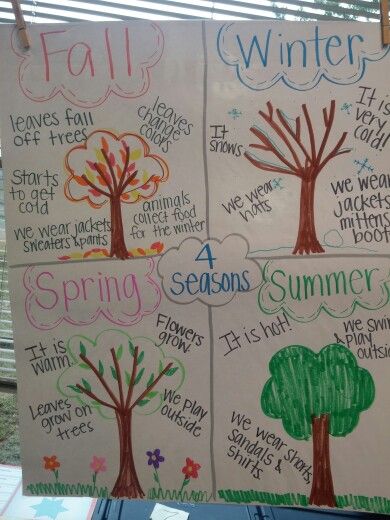 Fall
leaves fall
off trees
leaves
change
colors
Starts
to get
cold
animals
collect food
for the winter
we wear jackets
sweaters & pants
Winter
It
snows
It is
very
cold!
we wear
hats
we wear
jackets
mittens
boot
4
seasons
Spring
It is
warm.
Flowers
grow.
Leaves
grow on
trees
we play
outside
Summer
It is hot!
we swim
& play
outside
we wear shorts
sandals &
shirts.